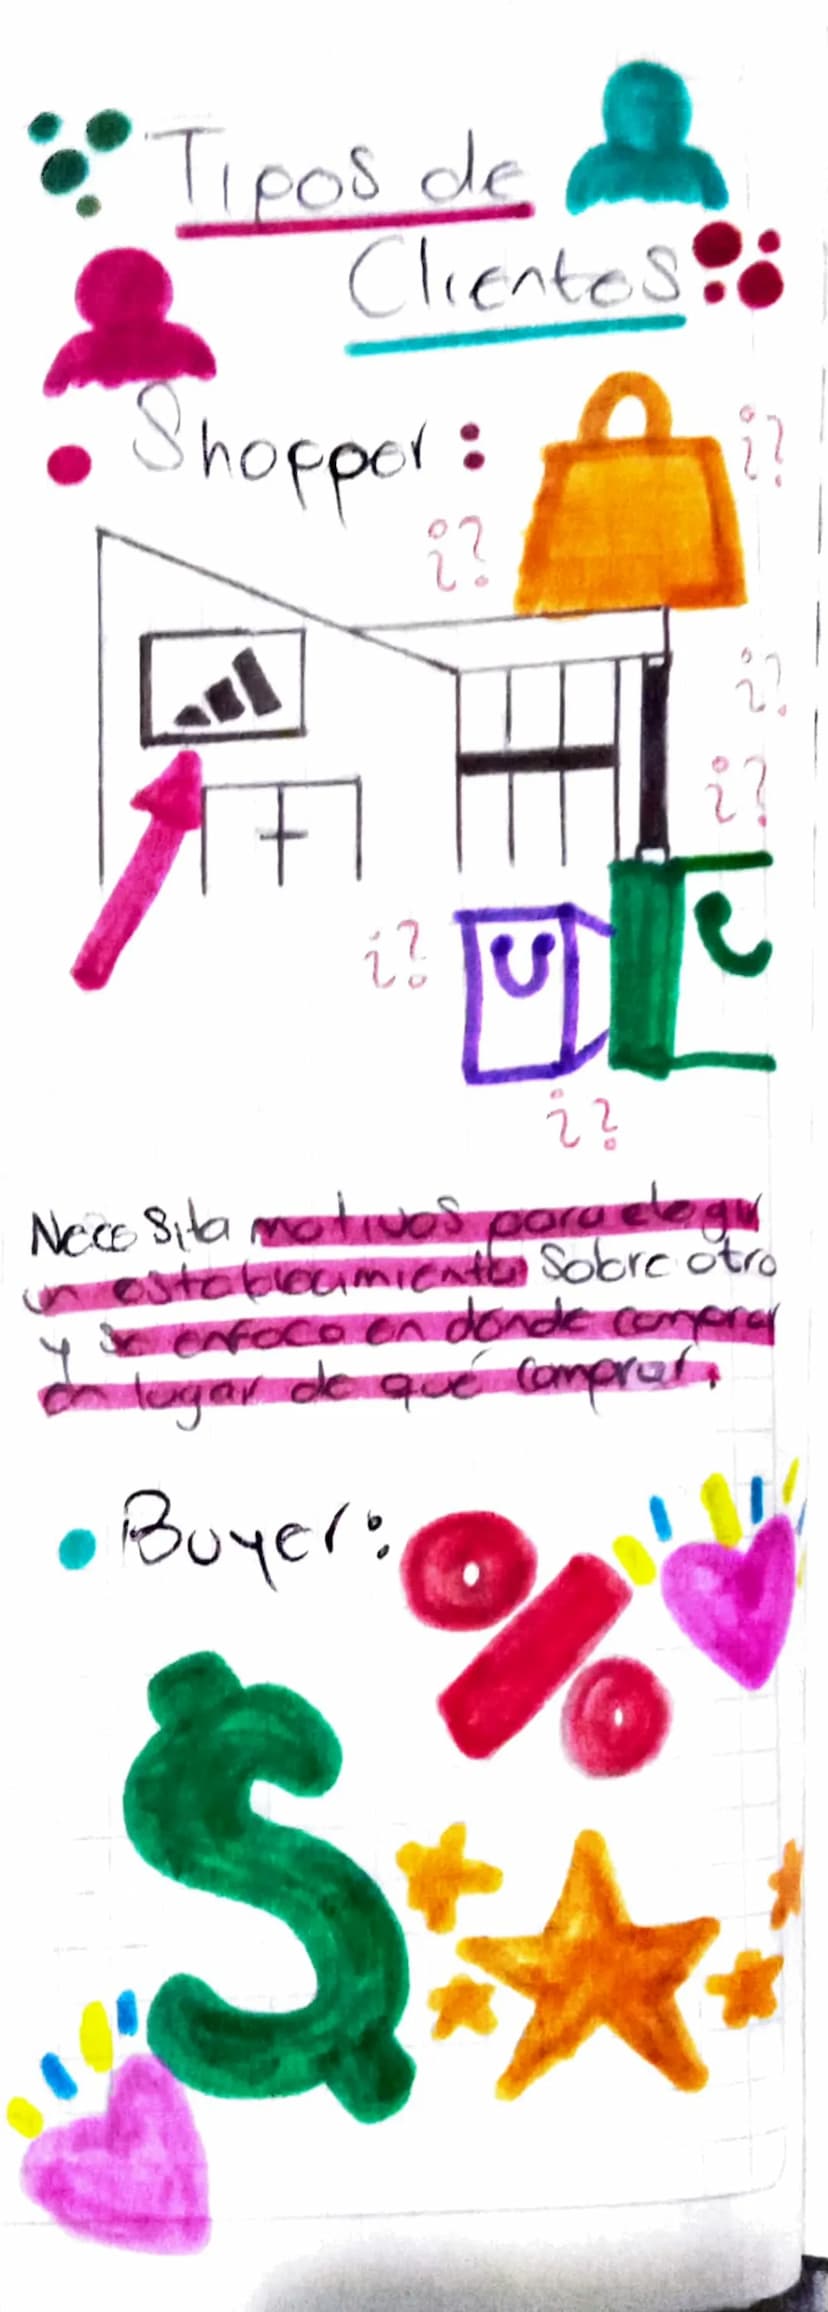 Tipos de
Clientes
• Shopper:
¿?
¿?
¿?
¿?
¿?
¿?
Necesita motivos para elegir
un establecimiento sobre otro
y se enfoca en dónde comprar
en lugar de qué comprar.
• Buyer: %
$